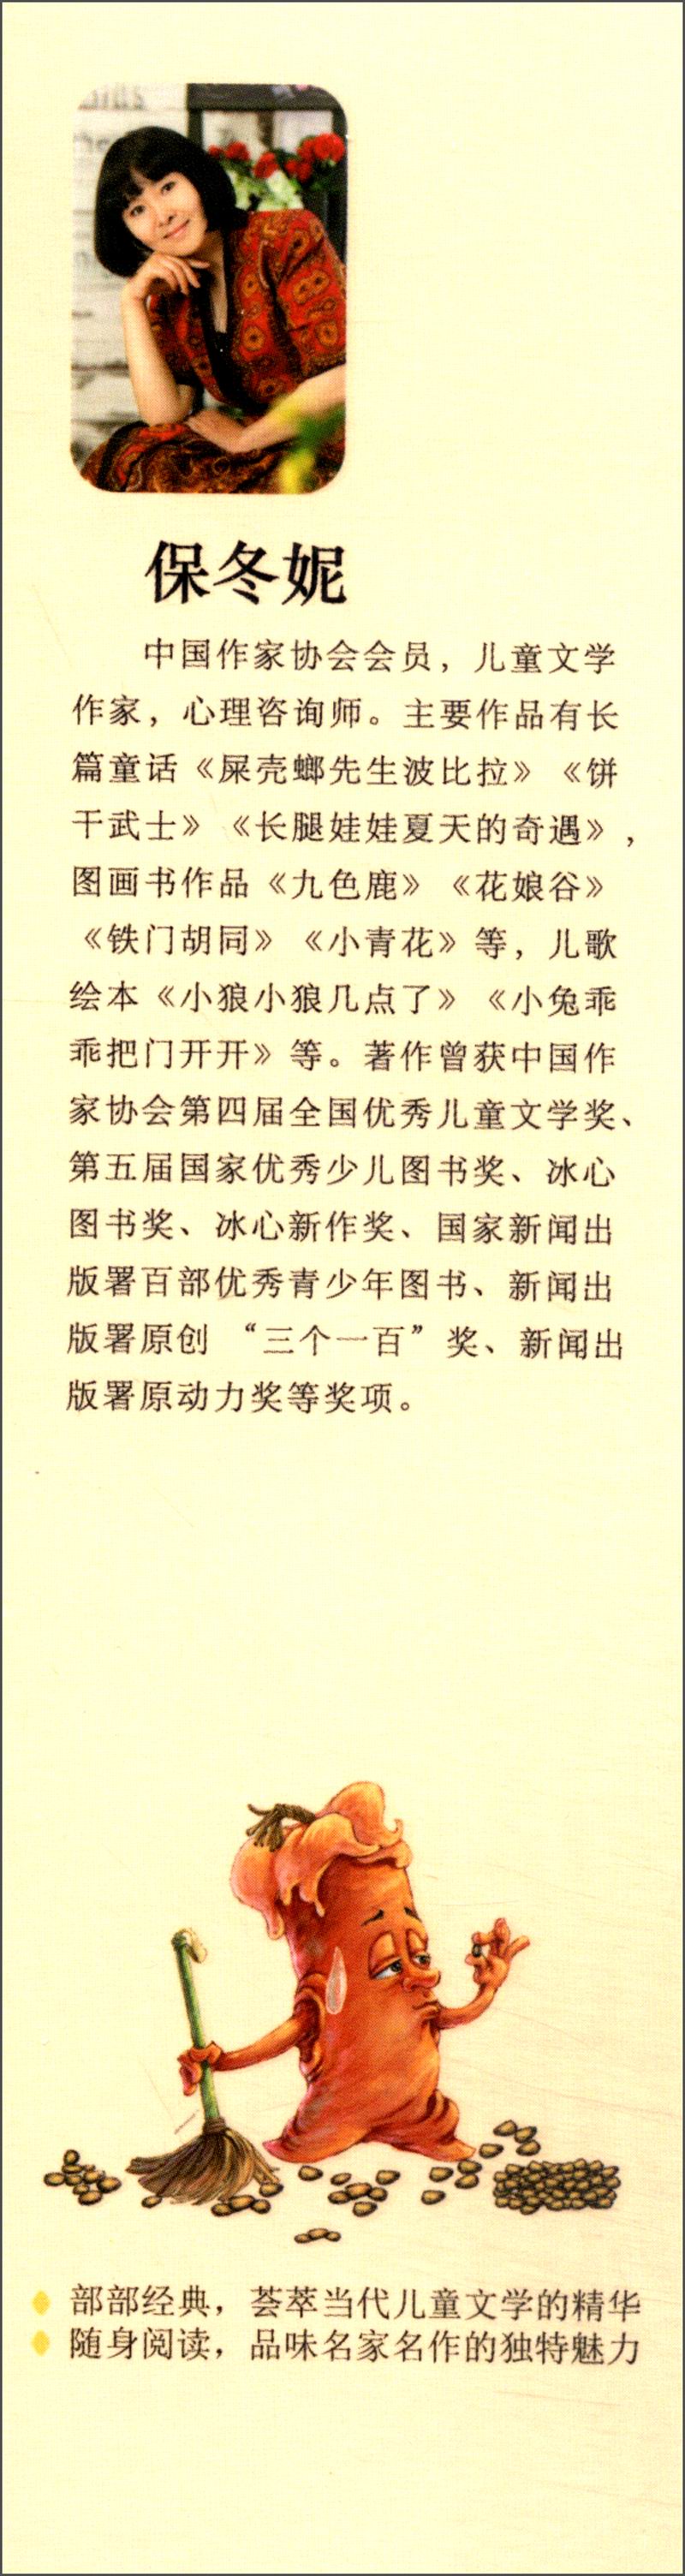 保冬妮
中国作家协会会员，儿童文学
作家，心理咨询师。主要作品有长
篇童话《屎壳螂先生波比拉》《饼
干武士》《长腿娃娃夏天的奇遇》，
图画书作品《九色鹿》《花娘谷》
《铁门胡同》《小青花》等，儿歌
绘本《小狼小狼几点了》《小兔乖
乖把门开开》等。著作曾获中国作
家协会第四届全国优秀儿童文学奖、
第五届国家优秀少儿图书奖、冰心
图书奖、冰心新作奖、国家新闻出
版署百部优秀青少年图书、新闻出
版署原创“三个一百”奖、新闻出
版署原动力奖等奖项。
部部经典，荟萃当代儿童文学的精华
随身阅读，品味名家名作的独特魅力